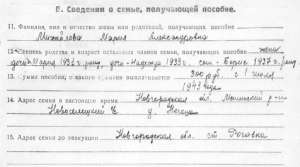 Б. Сведения о семье, получающей пособие.
11. Фамилия, имя и отчество жены или родителей, получающих пособие
Михайлова Мария Александровна
12. Степень родства и возраст остальных членов семьи, получающих пособие жена
дочь Мария 1932 г. рожд. дочь - Надежда 1935 г. сын - Борис 1937 г. рожд.
13. Сумма пособия, с какого времени выплачивается 300 руб. с 1 июля
1943 года
14. Адрес в настоящее время Новгородская обл. р-н
Новоселицкий д.
15. Адрес до эвакуации Новгородская обл. ст. Роговка